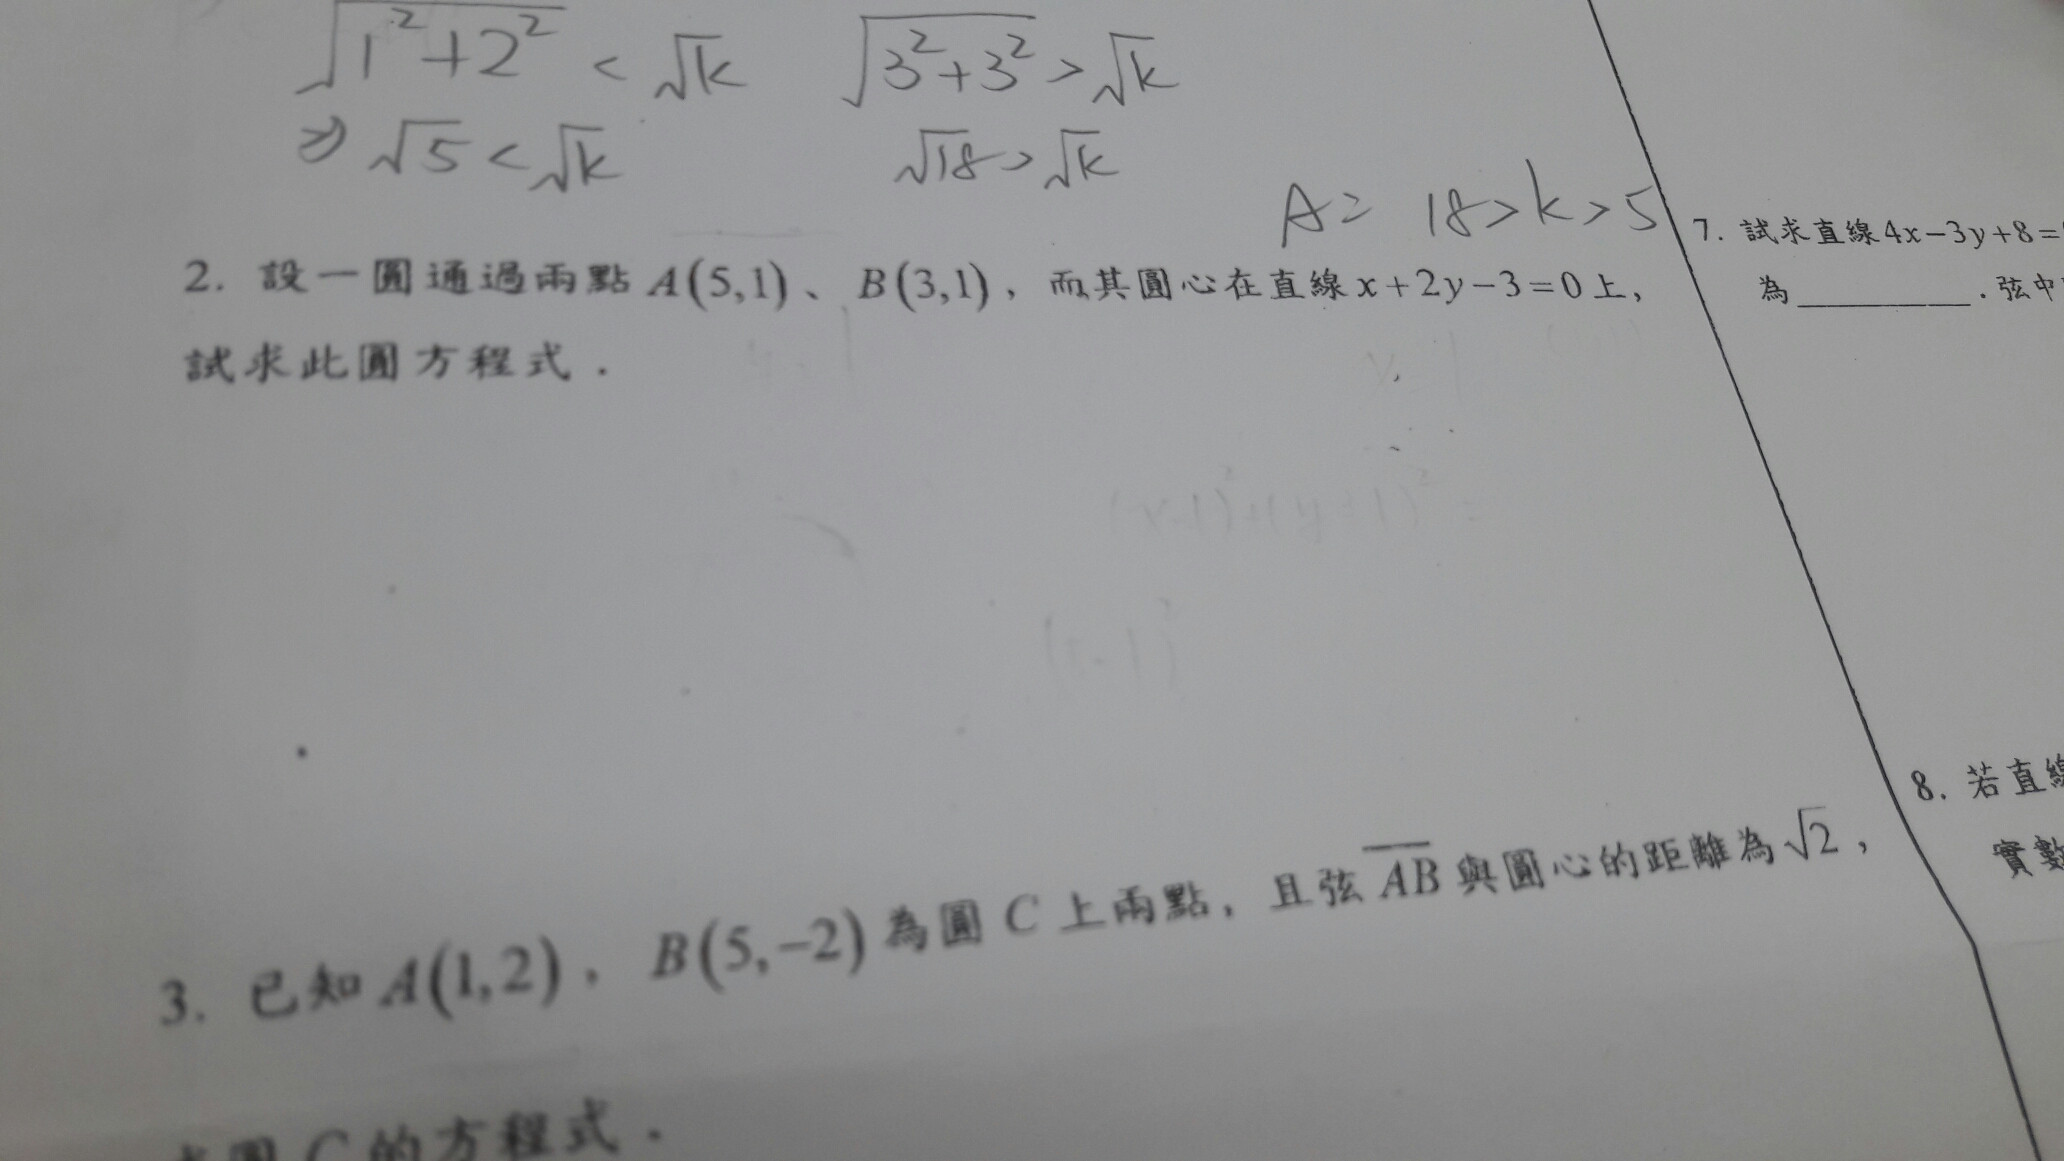 √(1²+2²) < √k √(3²+3²) > √k
⇒ √5 < √k √18 > √k
A= 18 > k > 5
2. 設一圓通過兩點 A(5,1)、 B(3,1),而其圓心在直線 x+2y−3=0 上,
試求此圓方程式.
(x-1)²+(y+1)² =
3. 已知 A(1,2), B(5,−2) 為圓 C 上兩點,且弦 \overline{AB} 與圓心的距離為 √2,
圓 C 的方程式.
7. 試求直線 4x−3y+8=
為 ________.弦中
8. 若直線
實數